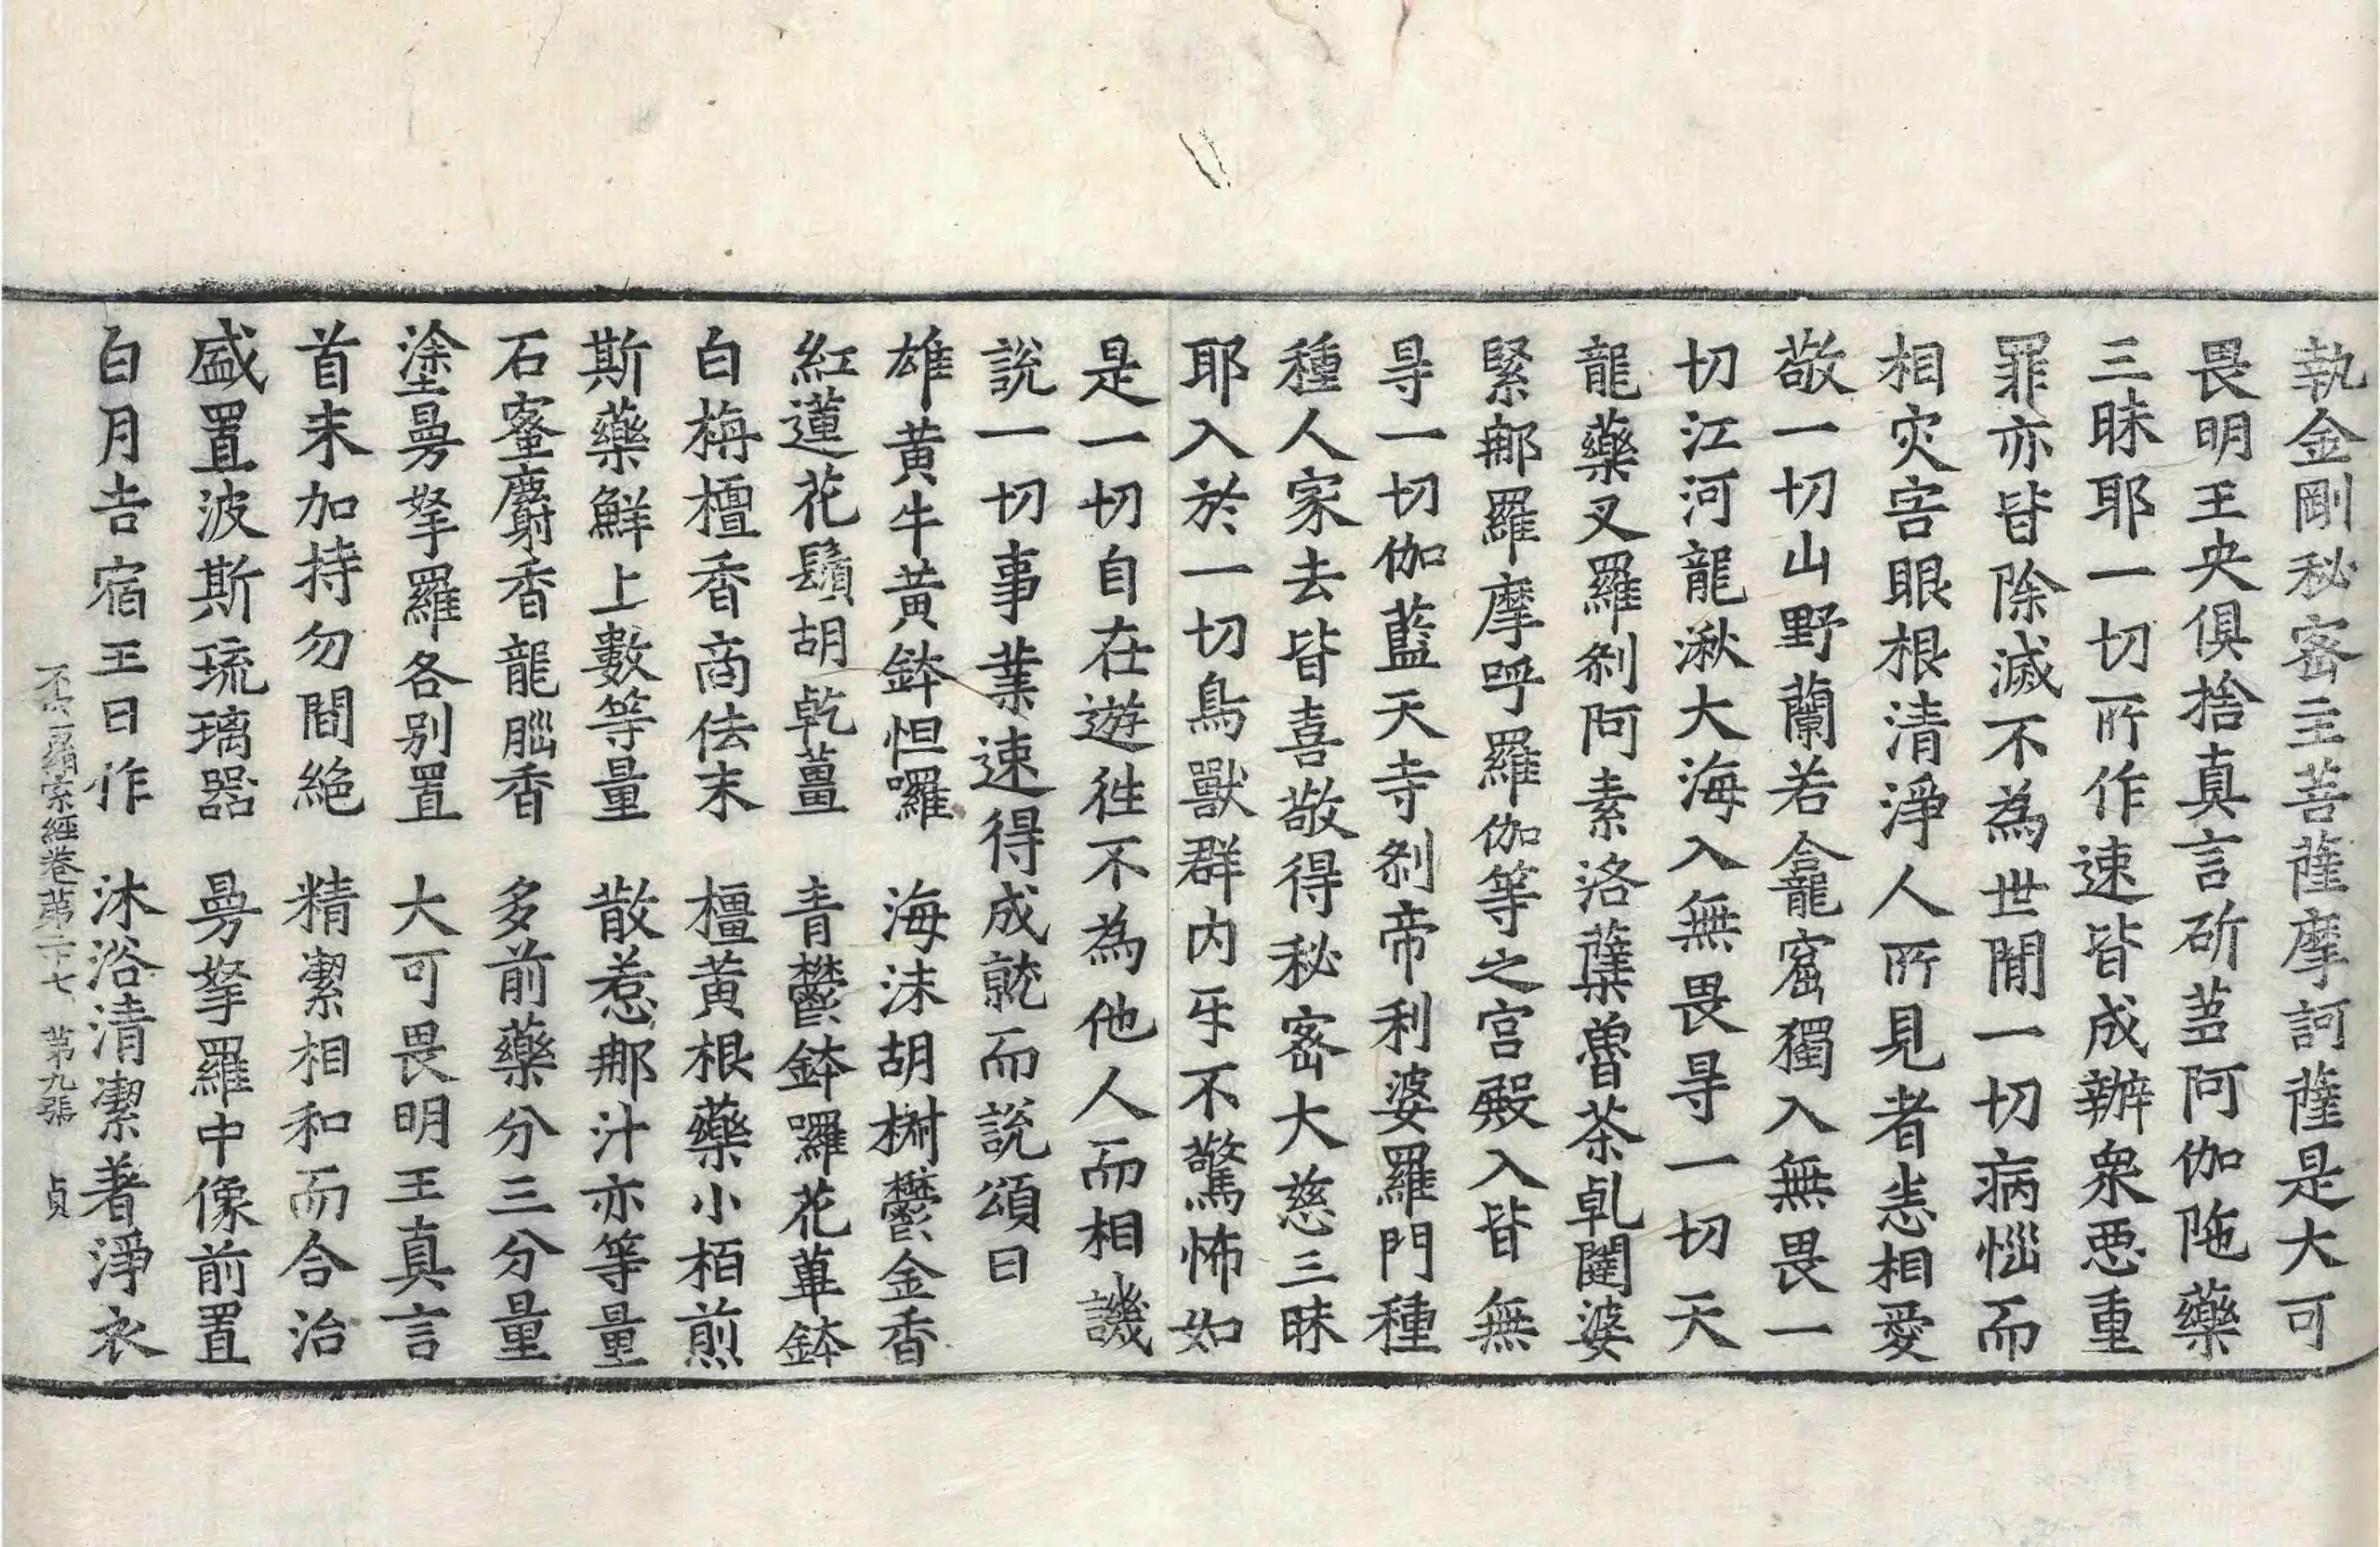 執金剛秘密主菩薩摩訶薩是大可
畏明王央俱捨真言斫蒭阿伽陁藥
三昧耶一切所作速皆成辦衆惡重
罪亦皆除滅不為世間一切病惱而
相灾害眼根清淨人所見者恙相愛
敬一切山野蘭若龕窟獨入無畏一
切江河龍湫大海入無畏㝵一切天
龍藥叉羅刹阿素洛蘖嚕荼乹闥婆
緊那羅摩呼羅伽等之宮殿入皆無
㝵一切伽藍天寺刹帝利婆羅門種
種人家去皆喜敬得秘密大慈三昧
耶入於一切鳥獸群內乐不驚怖如
是一切自在遊徃不為他人而相譏
說一切事業速得成就而說頌曰
雄黃牛黃鉢怛囉　海沫胡樹鬱金香
紅蓮花鬚胡乾薑　青鬱鉢囉花蓽鉢
白栴檀香商佉末　橿黃根藥小栢煎
斯藥鮮上數等量　散惹那汁亦等量
石蜜麝香龍腦香　多前藥分三分量
塗曼拏羅各別置　大可畏明王真言
首末加持勿間絶　精潔相和而合治
盛置波斯琉璃器　曼拏羅中像前置
白月吉宿王日作　沐浴清潔著淨衣
不空羂索經卷第二十七　第九張　貞